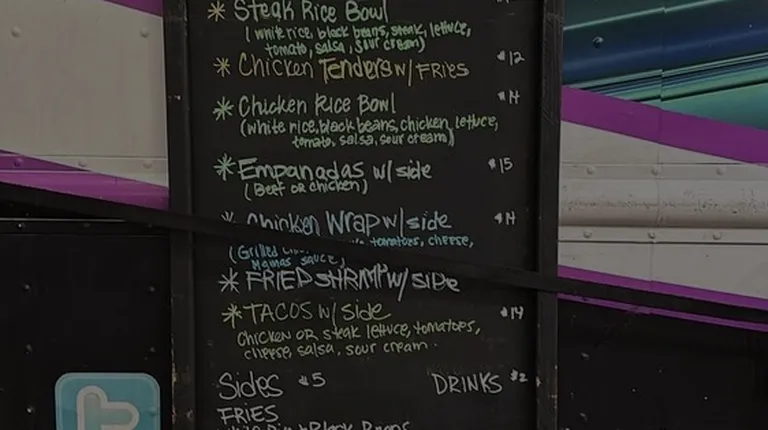 * Steak Rice Bowl
(white rice, black beans, steak, lettuce,
tomato, salsa, sour cream)
* Chicken Tenders w/ FRIES $12
* Chicken Rice Bowl $14
(white rice, black beans, chicken, lettuce,
tomato, salsa, sour cream)
* Empanadas w/ side $15
(Beef or chicken)
* Chicken Wrap w/ side $14
(Grilled tomatoes, cheese,
Mamas sauce)
* FRIED SHRIMP w/ side
* TACOS w/ side $14
Chicken OR Steak lettuce, tomatoes,
cheese, salsa, sour cream.
Sides $5 DRINKS $2
FRIES